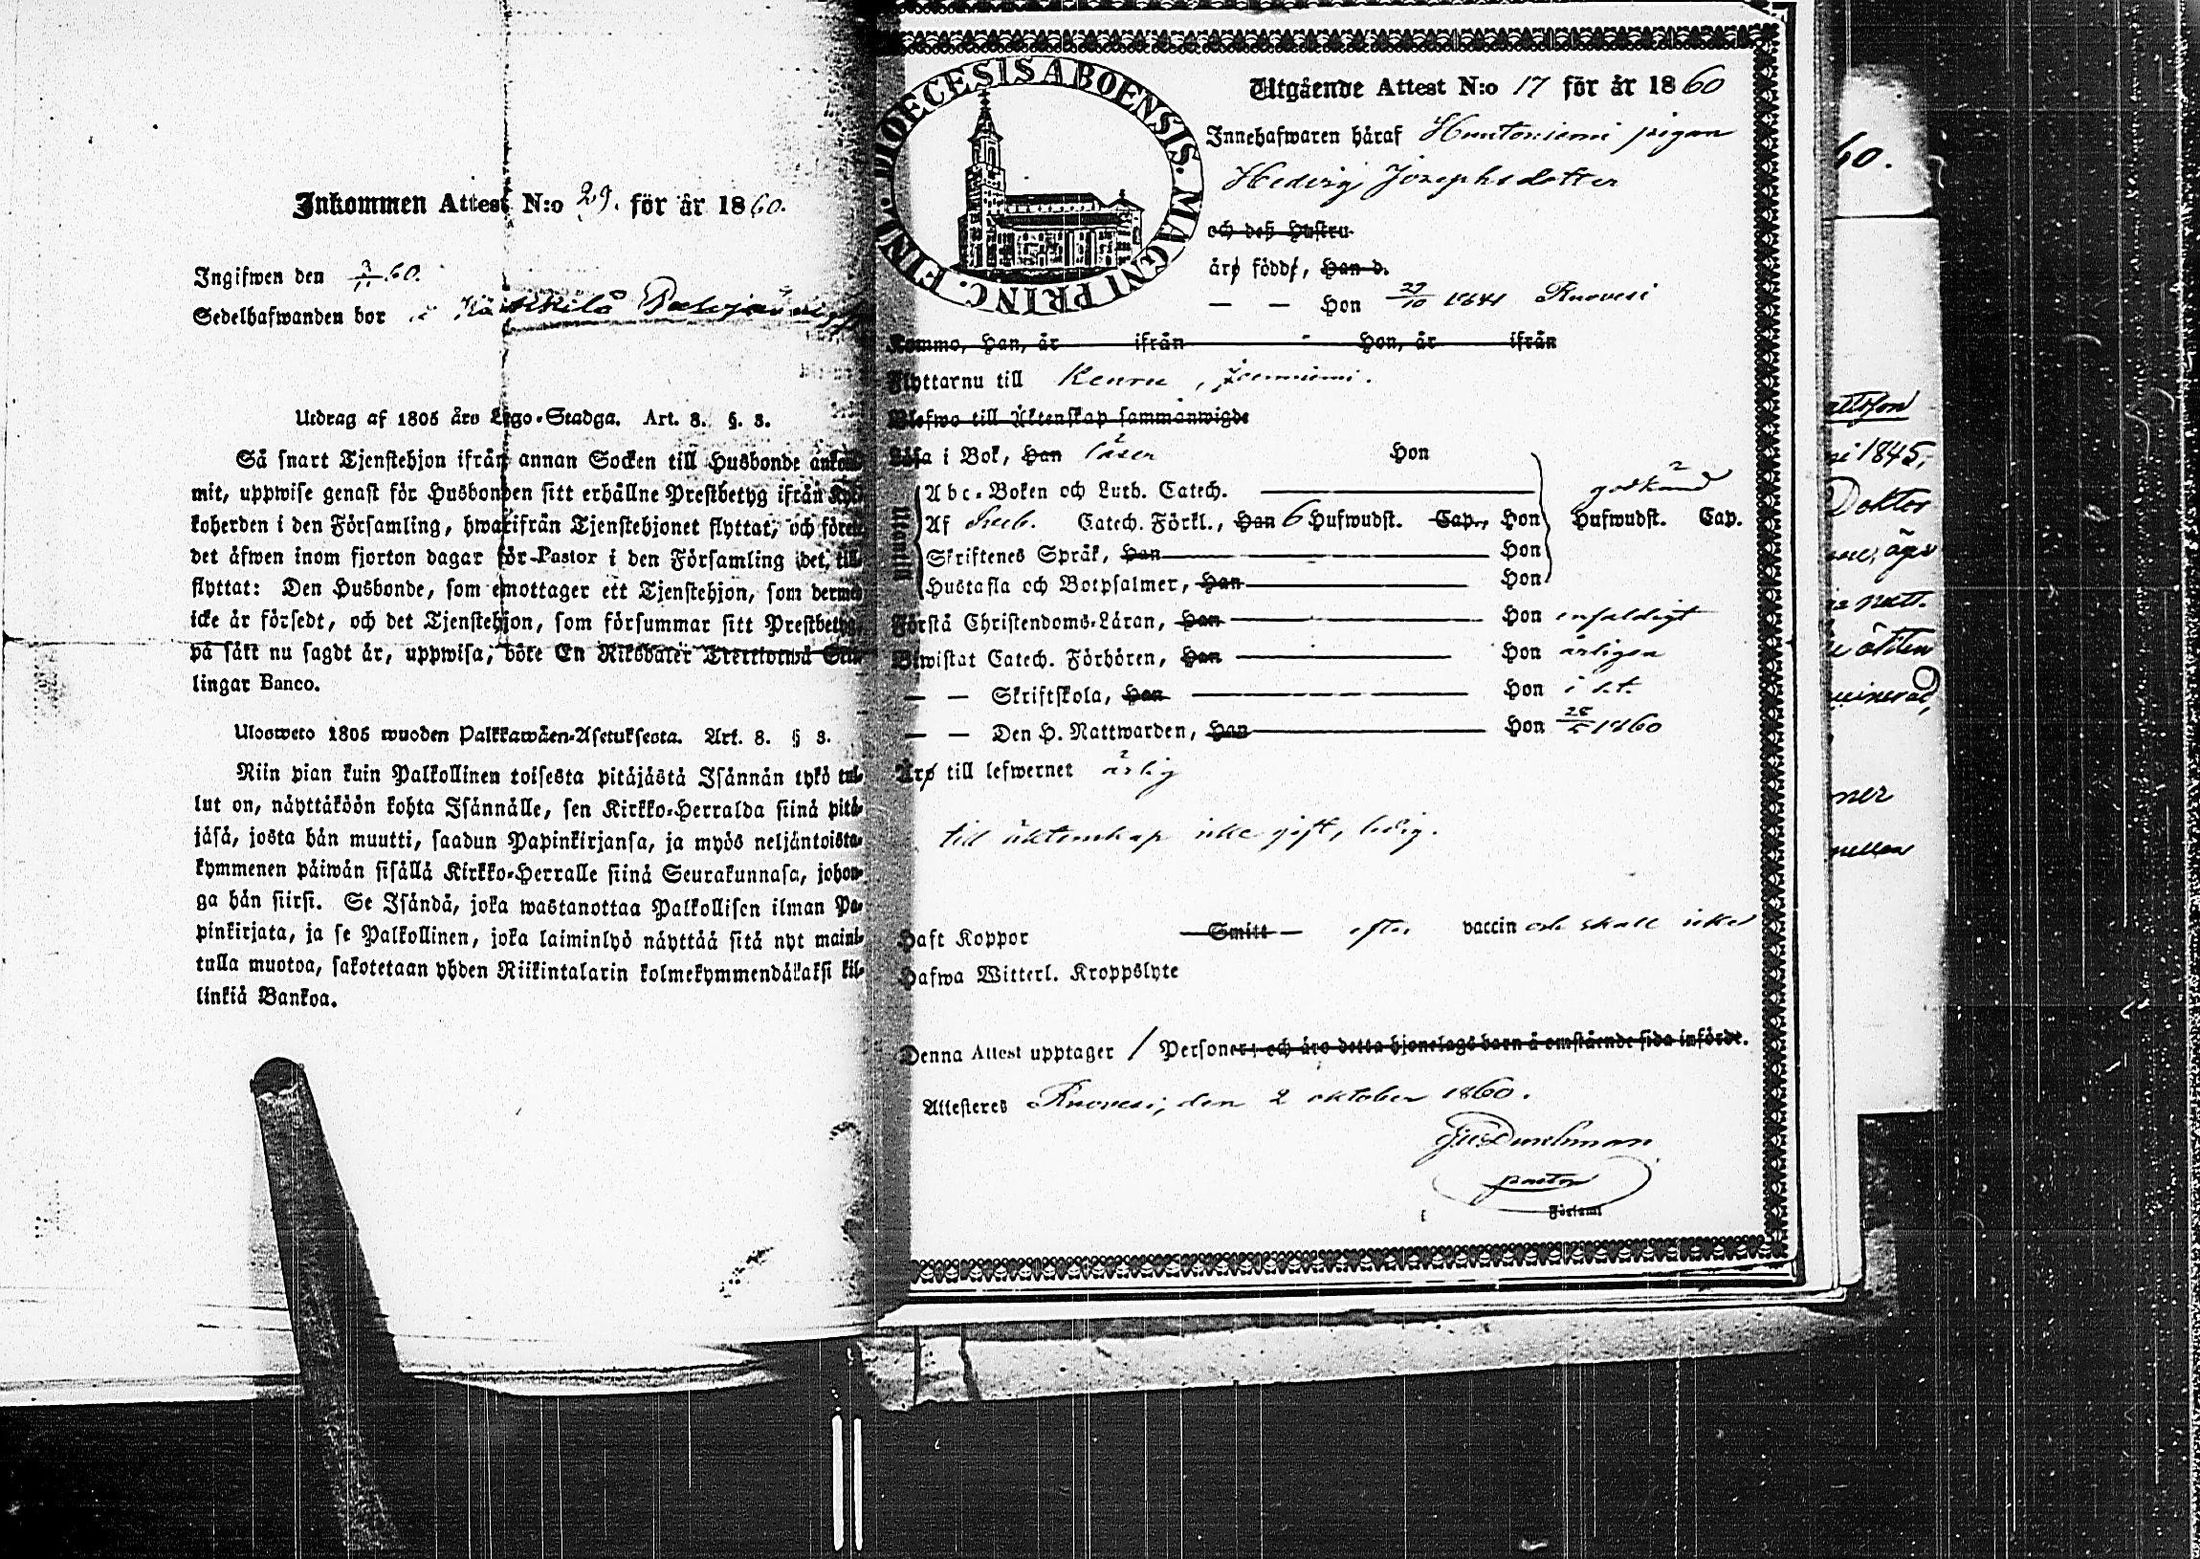 Inkommen Attest N:o 29. för år 1860.
Ingifwen den 3/11 60.
Sedelhafwanden bor i
Utdrag af 1805 års Lego-Stadga. Art. 8. §. 3.
Så snart Tjenstehjon ifrån annan Socken till Husbonde ankom-
mit, uppwise genast för Husbonden sitt erhållne Prestbetyg ifrån Kyr-
koherden i den Församling, hwarifrån Tjenstehjonet flyttat, och förete
det äfwen inom fjorton dagar för Pastor i den Församling det, till-
flyttat: Den Husbonde, som emottager ett Tjenstehjon, som dermed
icke är försedt, och det Tjenstehjon, som försummar sitt Prestbetyg,
på sätt nu sagdt är, uppwisa, böte En Riksdaler Trettiotwå Skil-
lingar Banco.
Ulosweto 1805 wuoden Palkkawäen-Asetuksesta. Art. 8. § 3.
Niin pian kuin Palkollinen toisesta pitäjästä Isännän tykö tul-
lut on, näyttäköön kohta Isännälle, sen Kirkko-Herralda siinä pitä-
jäsä, josta hän muutti, saadun Papinkirjansa, ja myös neljäntoista-
kymmenen päiwän sisällä Kirkko-Herralle siinä Seurakunnasa, johon-
ga hän siirsi. Se Isändä, joka wastanottaa Palkollisen ilman Pa-
pinkirjata, ja se Palkollinen, joka laiminlyö näyttää sitä nyt maini-
tulla muotoa, sakotetaan yhden Riikintalarin kolmekymmendäkaksi kil-
linkiä Bankoa.
DIOECESIS ABOENSIS. MAGNI PRINC. FINL.
Utgående Attest N:o 17 för år 1860
Innehafwaren häraf Huntoniemi pigan
Hedvig Josephsdotter
och deß Hustru
äro född, Han d.
— — Hon 29/10 1841 Ruovesi
Kommo, Han, år ifrån Hon, år ifrån
Flyttar nu till Keuru,
Blefwo till Äktenskap sammanwigde
Läsa i Bok, Han läser Hon
Utantill
Abc-Boken och Luth. Catech. godkänd
Af Catech. Förkl., Han 6 Hufwudst. Cap., Hon Hufwudst. Cap.
Skriftenes Språk, Han Hon
Hustafla och Botpsalmer, Han Hon
Förstå Christendoms-Läran, Han Hon enfaldigt
Biwistat Catech. Förhören, Han Hon årligen
— — Skriftskola, Han Hon i s.t.
— — Den H. Nattwarden, Han Hon 1860
Äro till lefwernet ärlig
till äktenskap icke gift, ledig.
Haft Koppor Smitt — efter vaccin och skall icke
Hafwa Witterl. Kroppslyte
Denna Attest upptager 1 Personer: och äro detta hjonelags barn å omstående sida införde.
Attesteras Ruovesi, den 2 oktober 1860.
pastor
Församl
60.
1845,
Doktor